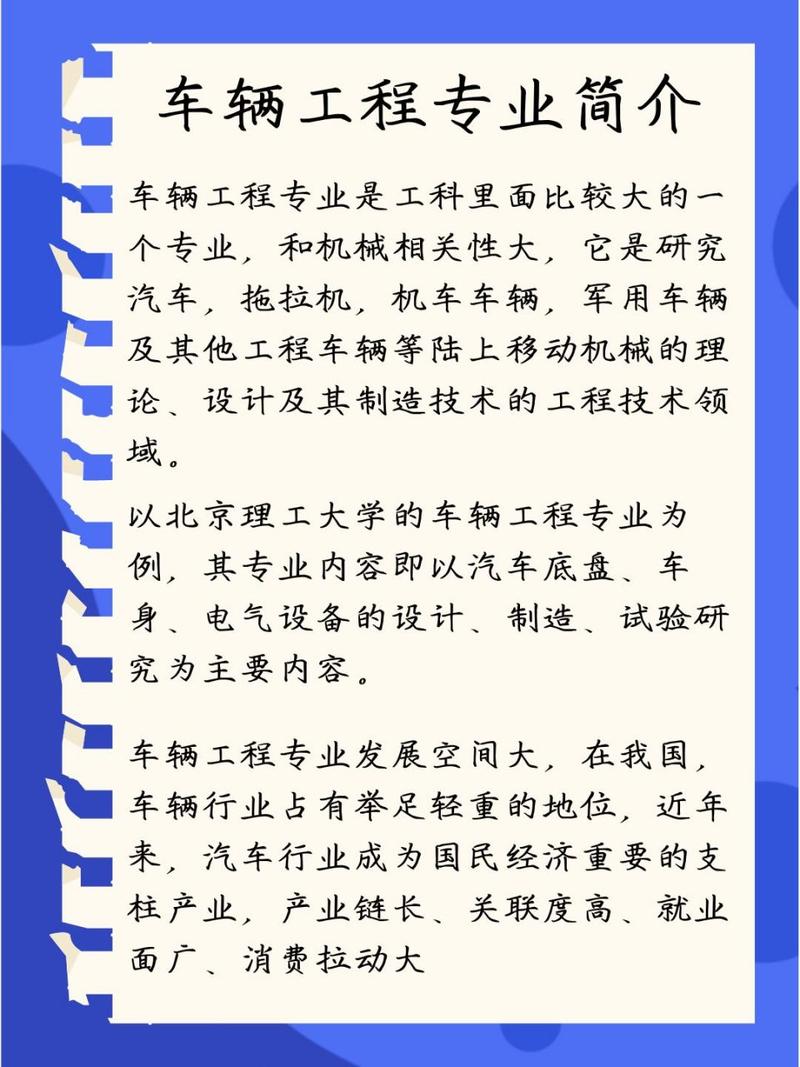 车辆工程专业简介
车辆工程专业是工科里面比较大的一
个专业，和机械相关性大，它是研究
汽车，拖拉机，机车车辆，军用车辆
及其他工程车辆等陆上移动机械的理
论、设计及其制造技术的工程技术领
域。
以北京理工大学的车辆工程专业为
例，其专业内容即以汽车底盘、车
身、电气设备的设计、制造、试验研
究为主要内容。
车辆工程专业发展空间大，在我国，
车辆行业占有举足轻重的地位，近年
来，汽车行业成为国民经济重要的支
柱产业，产业链长、关联度高、就业
面广、消费拉动大